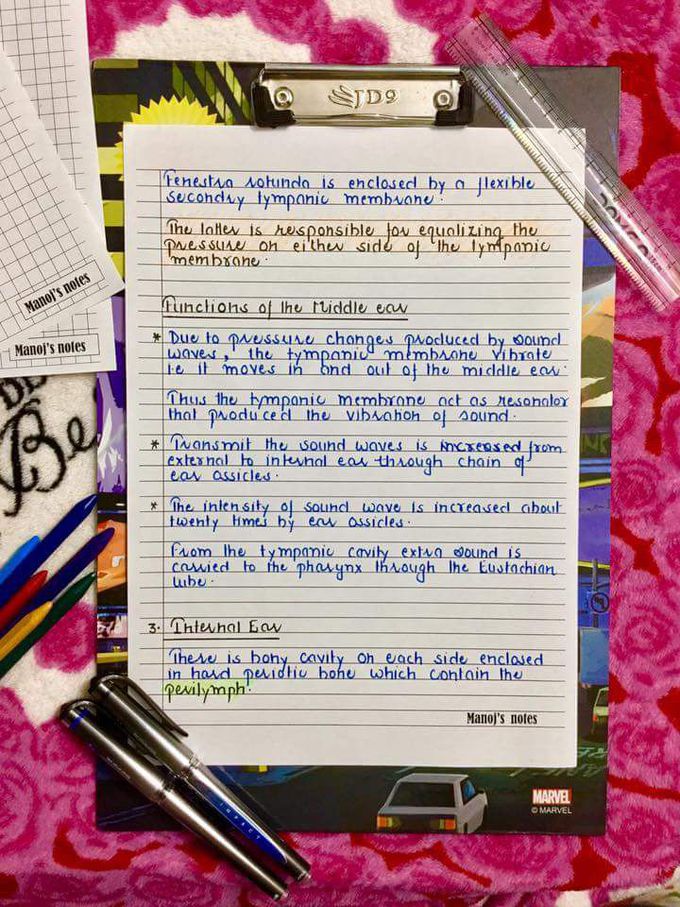 JD9
Fenestra rotunda is enclosed by a flexible
secondry tympanic membrane.
The latter is responsible for equalizing the
pressure on either side of the tympanic
membrane.
Functions of the Middle ear
* Due to pressure changes produced by sound
waves, the tympanic membrane vibrate
i.e it moves in and out of the middle ear.
Thus the tympanic membrane act as resonator
that produced the vibration of sound.
* Transmit the sound waves is increased from
external to internal ear through chain of
ear assicles.
* The intensity of sound wave is increased about
twenty times by ear ossicles.
From the tympanic cavity extra sound is
carried to the pharynx through the Eustachian
tube.
3. Internal Ear
There is bony cavity on each side enclosed
in hard periotic bone which contain the
perilymph.
Manoj's notes
Manoj's notes
Manoj's notes
Be
IMPACT
MARVEL
© MARVEL